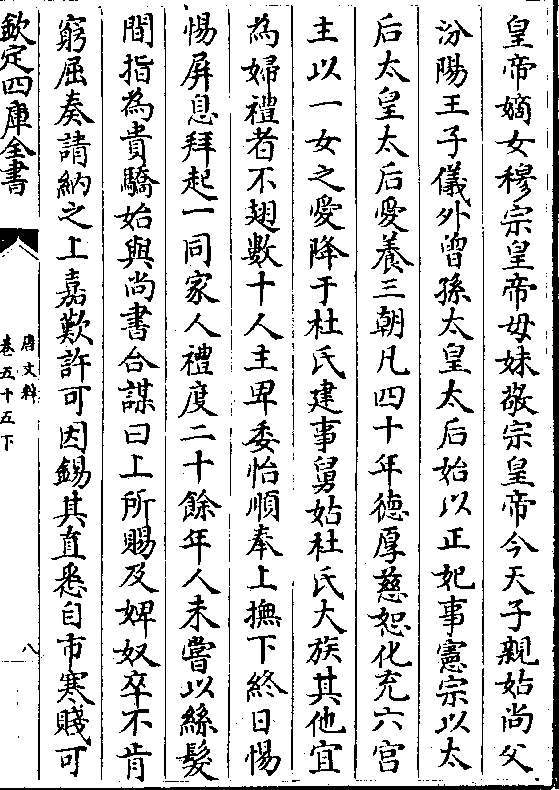 皇帝嫡女穆宗皇帝母妹敬宗皇帝今天子親姑尚父
汾陽王子儀外曾孫太皇太后始以正妃事憲宗以太
后太皇太后愛養三朝凡四十年德厚慈恕化充六宫
主以一女之愛降于杜氏建事舅姑杜氏大族其他宜
為婦禮者不翅數十人主卑委怡順奉上撫下終日惕
惕屏息拜起一同家人禮度二十餘年人未嘗以絲髮
間指為貴驕始與尚書合謀曰上所賜及婢奴卒不肯
窮屈奏請納之上嘉歎許可因錫其直悉自市寒賤可
欽定四庫全書
唐文粹
卷五十五下
八